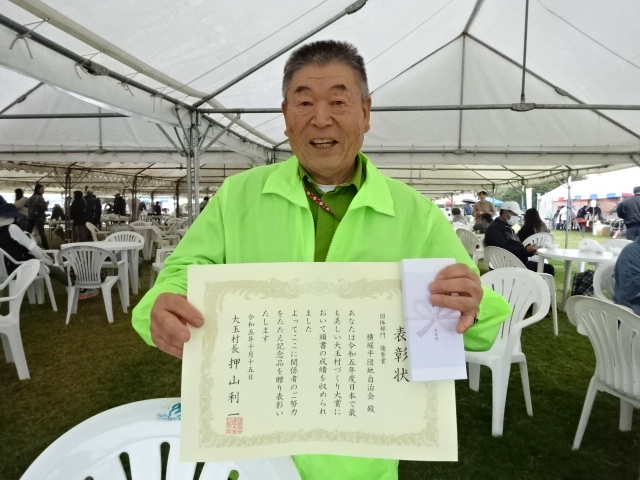 表彰状
団体部門 優秀賞
横堀平団地自治会 殿
あなたは令和五年度日本で最
も美しい大玉村づくり大賞に
おいて頭書の成績を収められ
ました
よってここに関係者のご努力
をたたえ記念品を贈り表彰い
たします
令和五年十月十五日
大玉村長 押山利一